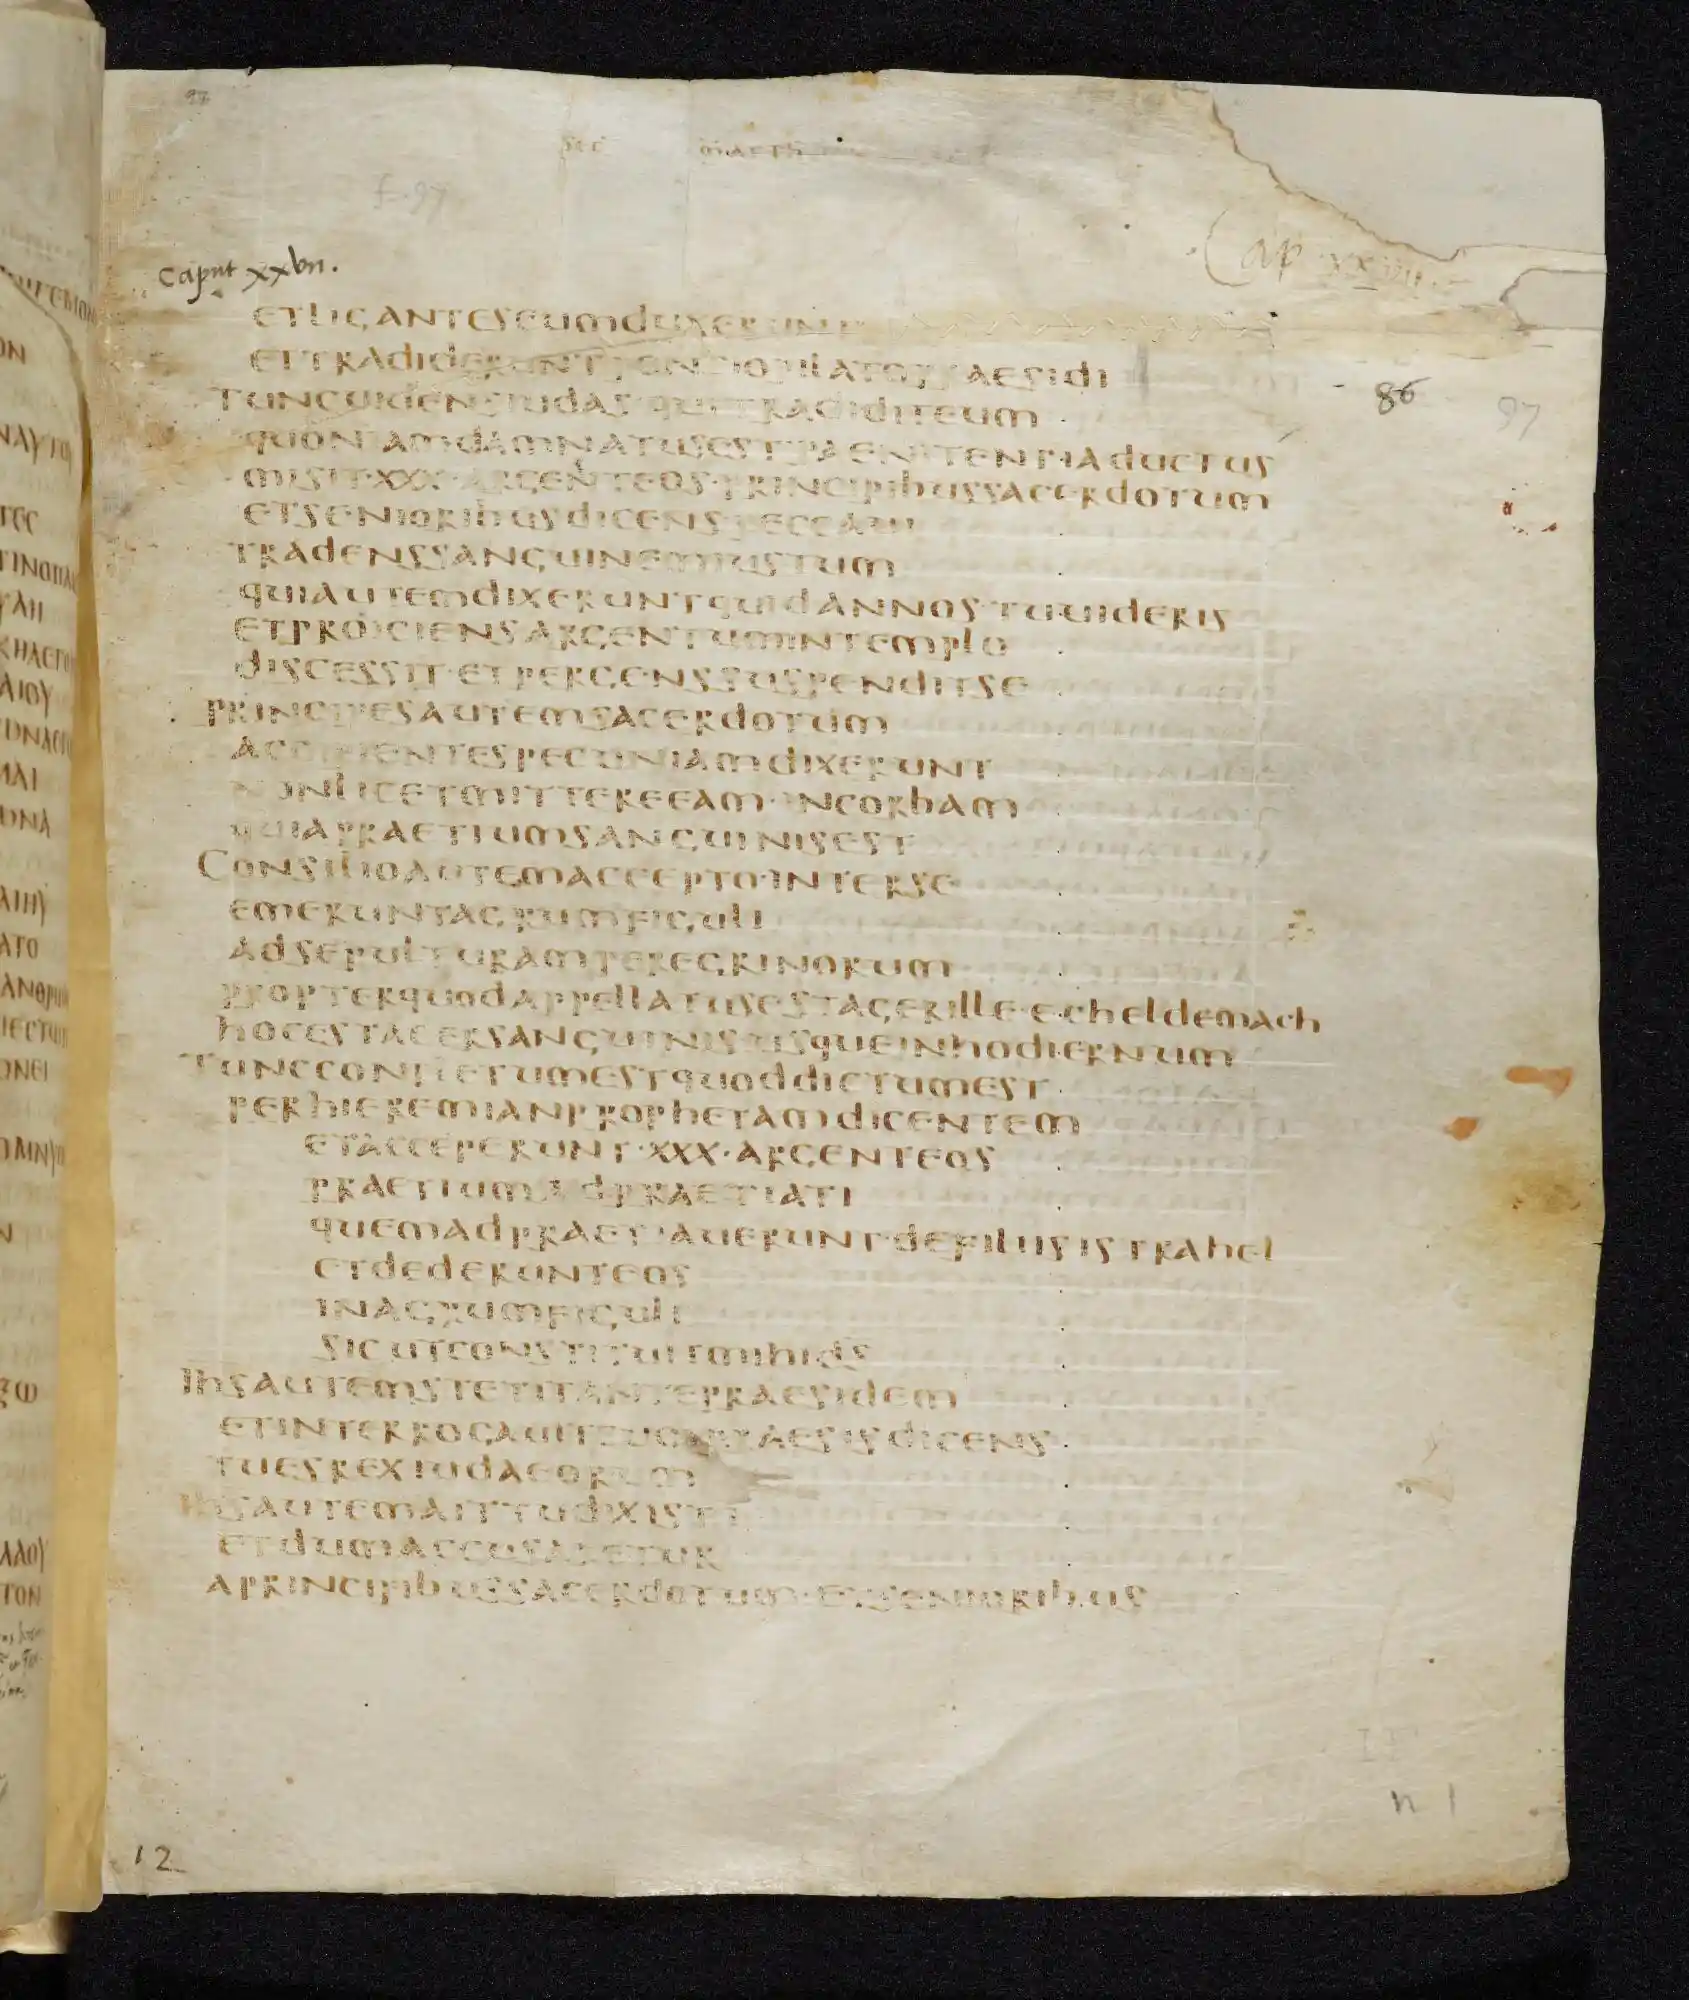 sec math
f. 97
Cap xxvii.
Caput xxvii.
ETLIGANTESEUMDUXERUNT
ETTRADIDERUNTPONTIOPILATOPRAESIDI
86
97
TUNCUIDENSIUDAS·QUITRADIDITEUM
QUONIAMDAMNATUSEST·PAENITENTIADUCTUS
MISIT·XXX·ARGENTEOS·PRINCIPIBUSSACERDOTUM
ETSENIORIBUSDICENSPECCAUI
TRADENSSANGUINEMIUSTUM
QUIAUTEMDIXERUNTQUIDADNOS·TUUIDERIS
ETPROICIENSARGENTUMINTEMPLO
DISCESSIT·ETPERGENSSUSPENDITSE
PRINCIPESAUTEMSACERDOTUM
ACCIPIENTESPECUNIAMDIXERUNT
NONLICETMITTEREEAM·INCORBAM
QUIAPRAETIUMSANGUINISEST
CONSILIOAUTEMACCEPTO·INTERSE
EMERUNTAGRUMFIGULI
ADSEPULTURAMPEREGRINORUM
PROPTERQUODAPPELLATUSESTAGERILLE·ECHELDEMACH
HOCESTAGERSANGUINIS·USQUEINHODIERNUM
TUNCCONPLETUMESTQUODDICTUMEST
PERHIEREMIANPROPHETAMDICENTEM
ETACCEPERUNT·XXX·ARGENTEOS
PRAETIUMADPRAETIATI
QUEMADPRAETIAUERUNT·DEFILIISISTRAHEL
ETDEDERUNTEOS
INAGRUMFIGULI
SICUTCONSTITUITMIHIDS
IHSAUTEMSTETITANTEPRAESIDEM
ETINTERROGAUITEUMPRAESISDICENS
TUESREXIUDAEORUM
IHSAUTEMAITTUDIXISTI
ETDUMACCUSARETUR
APRINCIPIBUSSACERDOTUM·ETSENIORIBUS
n 1
12